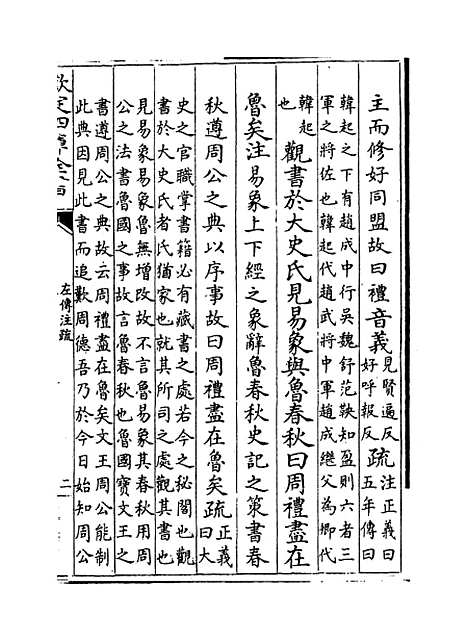 主而修好同盟故曰禮音義
見賢遍反
好呼報反
疏
注正義曰
五年傳曰
韓起之下有趙成中行吳魏舒范鞅知盈則六者三
軍之將佐也韓起代趙武將中軍趙成繼父為卿代
韓起
也
觀書於大史氏見易象與魯春秋曰周禮盡在
魯矣注易象上下經之象辭魯春秋史記之策書春
秋遵周公之典以序事故曰周禮盡在魯矣疏
正義
曰大
史之官職掌書籍必有藏書之處若今之秘閣也觀
書於大史氏者氏猶家也就其所司之處觀其書也
見易象易象魯無增改故不言魯易象其春秋用周
公之法書魯國之事故言魯春秋也魯國寶文王之
書遵周公之典故云周禮盡在魯矣文王周公能制
此典因見此書而追歎周德吾乃於今日始知周公
欽定四庫全書
左傳注疏
二